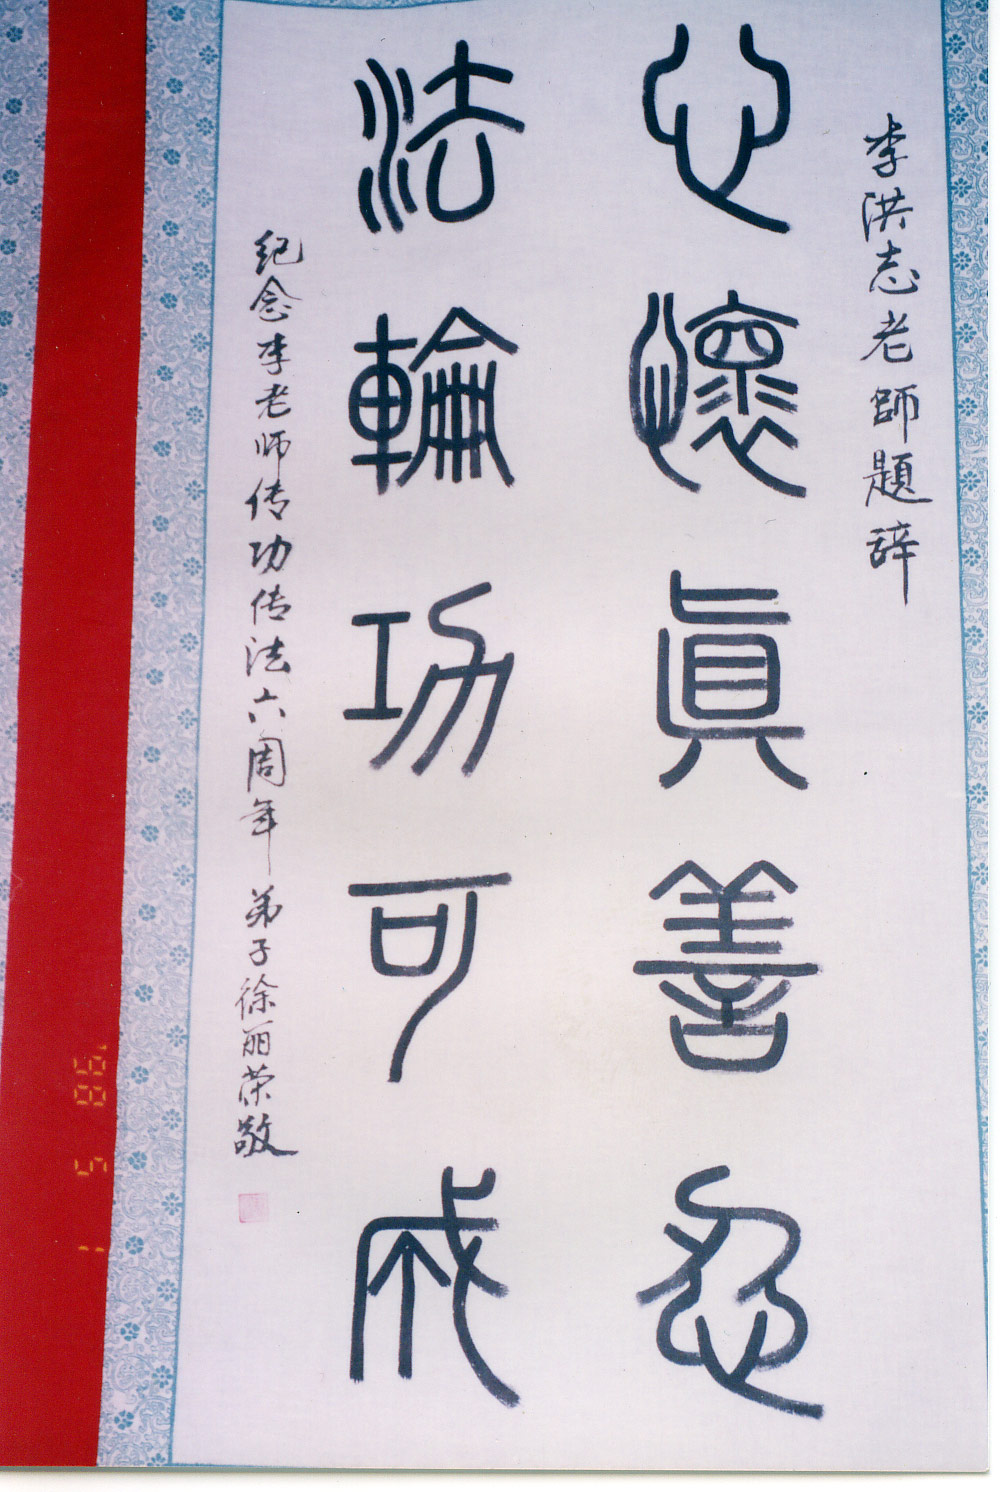 李洪志老師題辞
心懷眞善忍
法輪功可成
纪念李老师传功传法六周年 弟子徐丽荣敬
'98 5 1